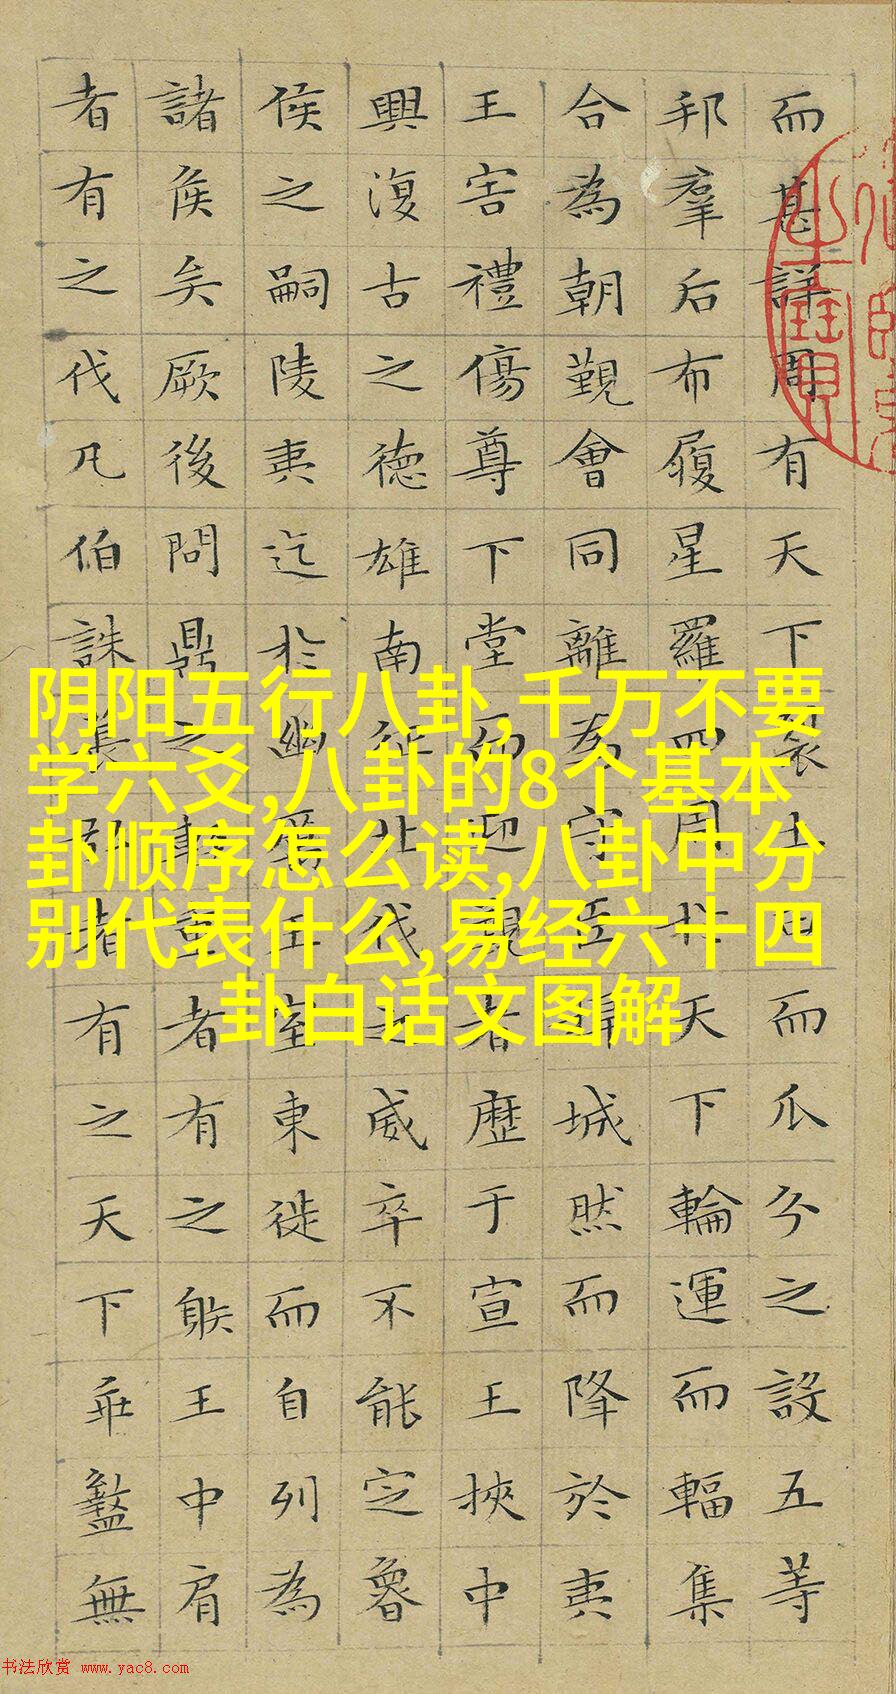 而甚詳周有天下裂土田而瓜分之設五等
邦羣后布履星羅四周于天下輪運而輻集
合為朝覲會同離為守臣扞城然而降於夷
王害禮傷尊下堂而迎覲者歷于宣王挾中
興復古之德雄南征北伐之威卒不能定魯
侯之嗣陵夷迄於幽厲王室東徙而自列為
諸侯矣厥後問鼎之輕重者有之射王中肩
者有之伐凡伯誅萇弘者有之天下乖盭無
阴阳五行八卦,千万不要
学六爻,八卦的8个基本
卦顺序怎么读,八卦中分
别代表什么,易经六十四
卦白话文图解
书法欣赏 www.yac8.com